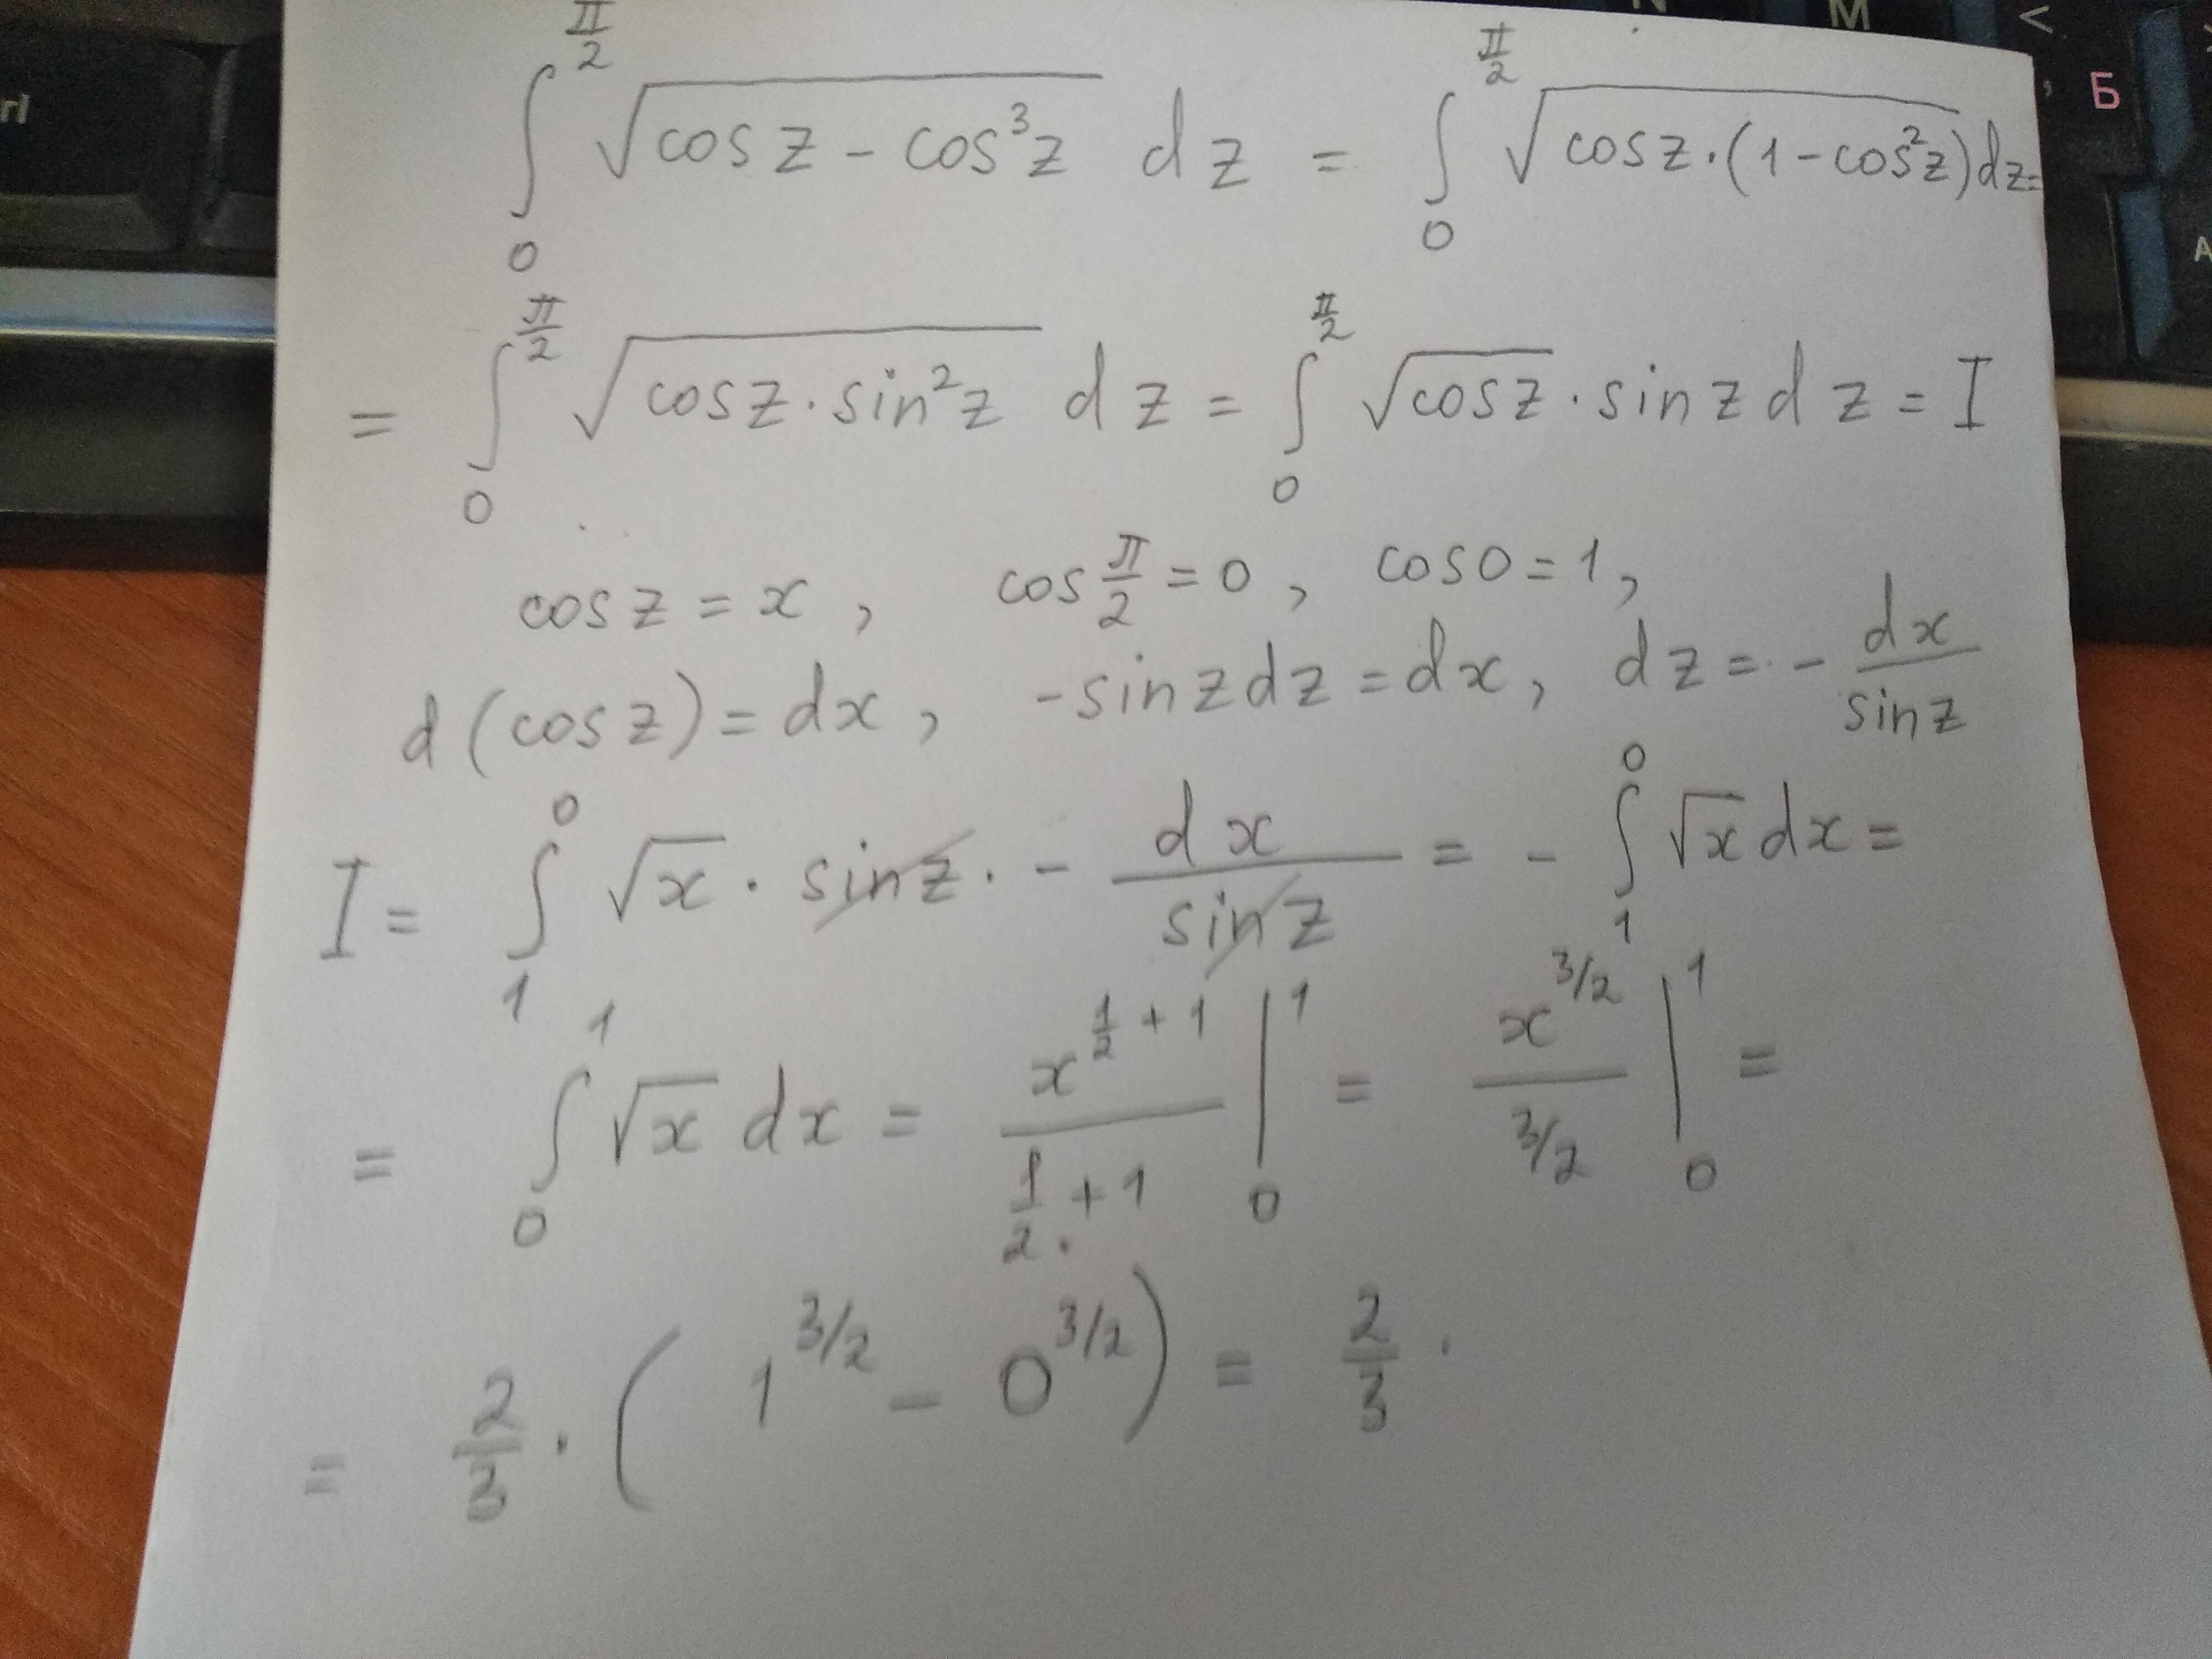 rl N M < , Б A
∫₀^(π/2) √(cos z - cos³z) dz = ∫₀^(π/2) √(cos z · (1 - cos²z)) dz =
= ∫₀^(π/2) √(cos z · sin²z) dz = ∫₀^(π/2) √(cos z) · sin z dz = I
cos z = x , cos π/2 = 0 , cos 0 = 1 ,
d (cos z) = dx , - sin z dz = dx , dz = - dx/sin z
I = ∫₁⁰ √x · sin z · - dx/sin z = - ∫₁⁰ √x dx =
= ∫₀¹ √x dx = x^(1/2 + 1)/(1/2 + 1) |₀¹ = x^(3/2)/(3/2) |₀¹ =
= 2/3 · ( 1^(3/2) - 0^(3/2) ) = 2/3 .